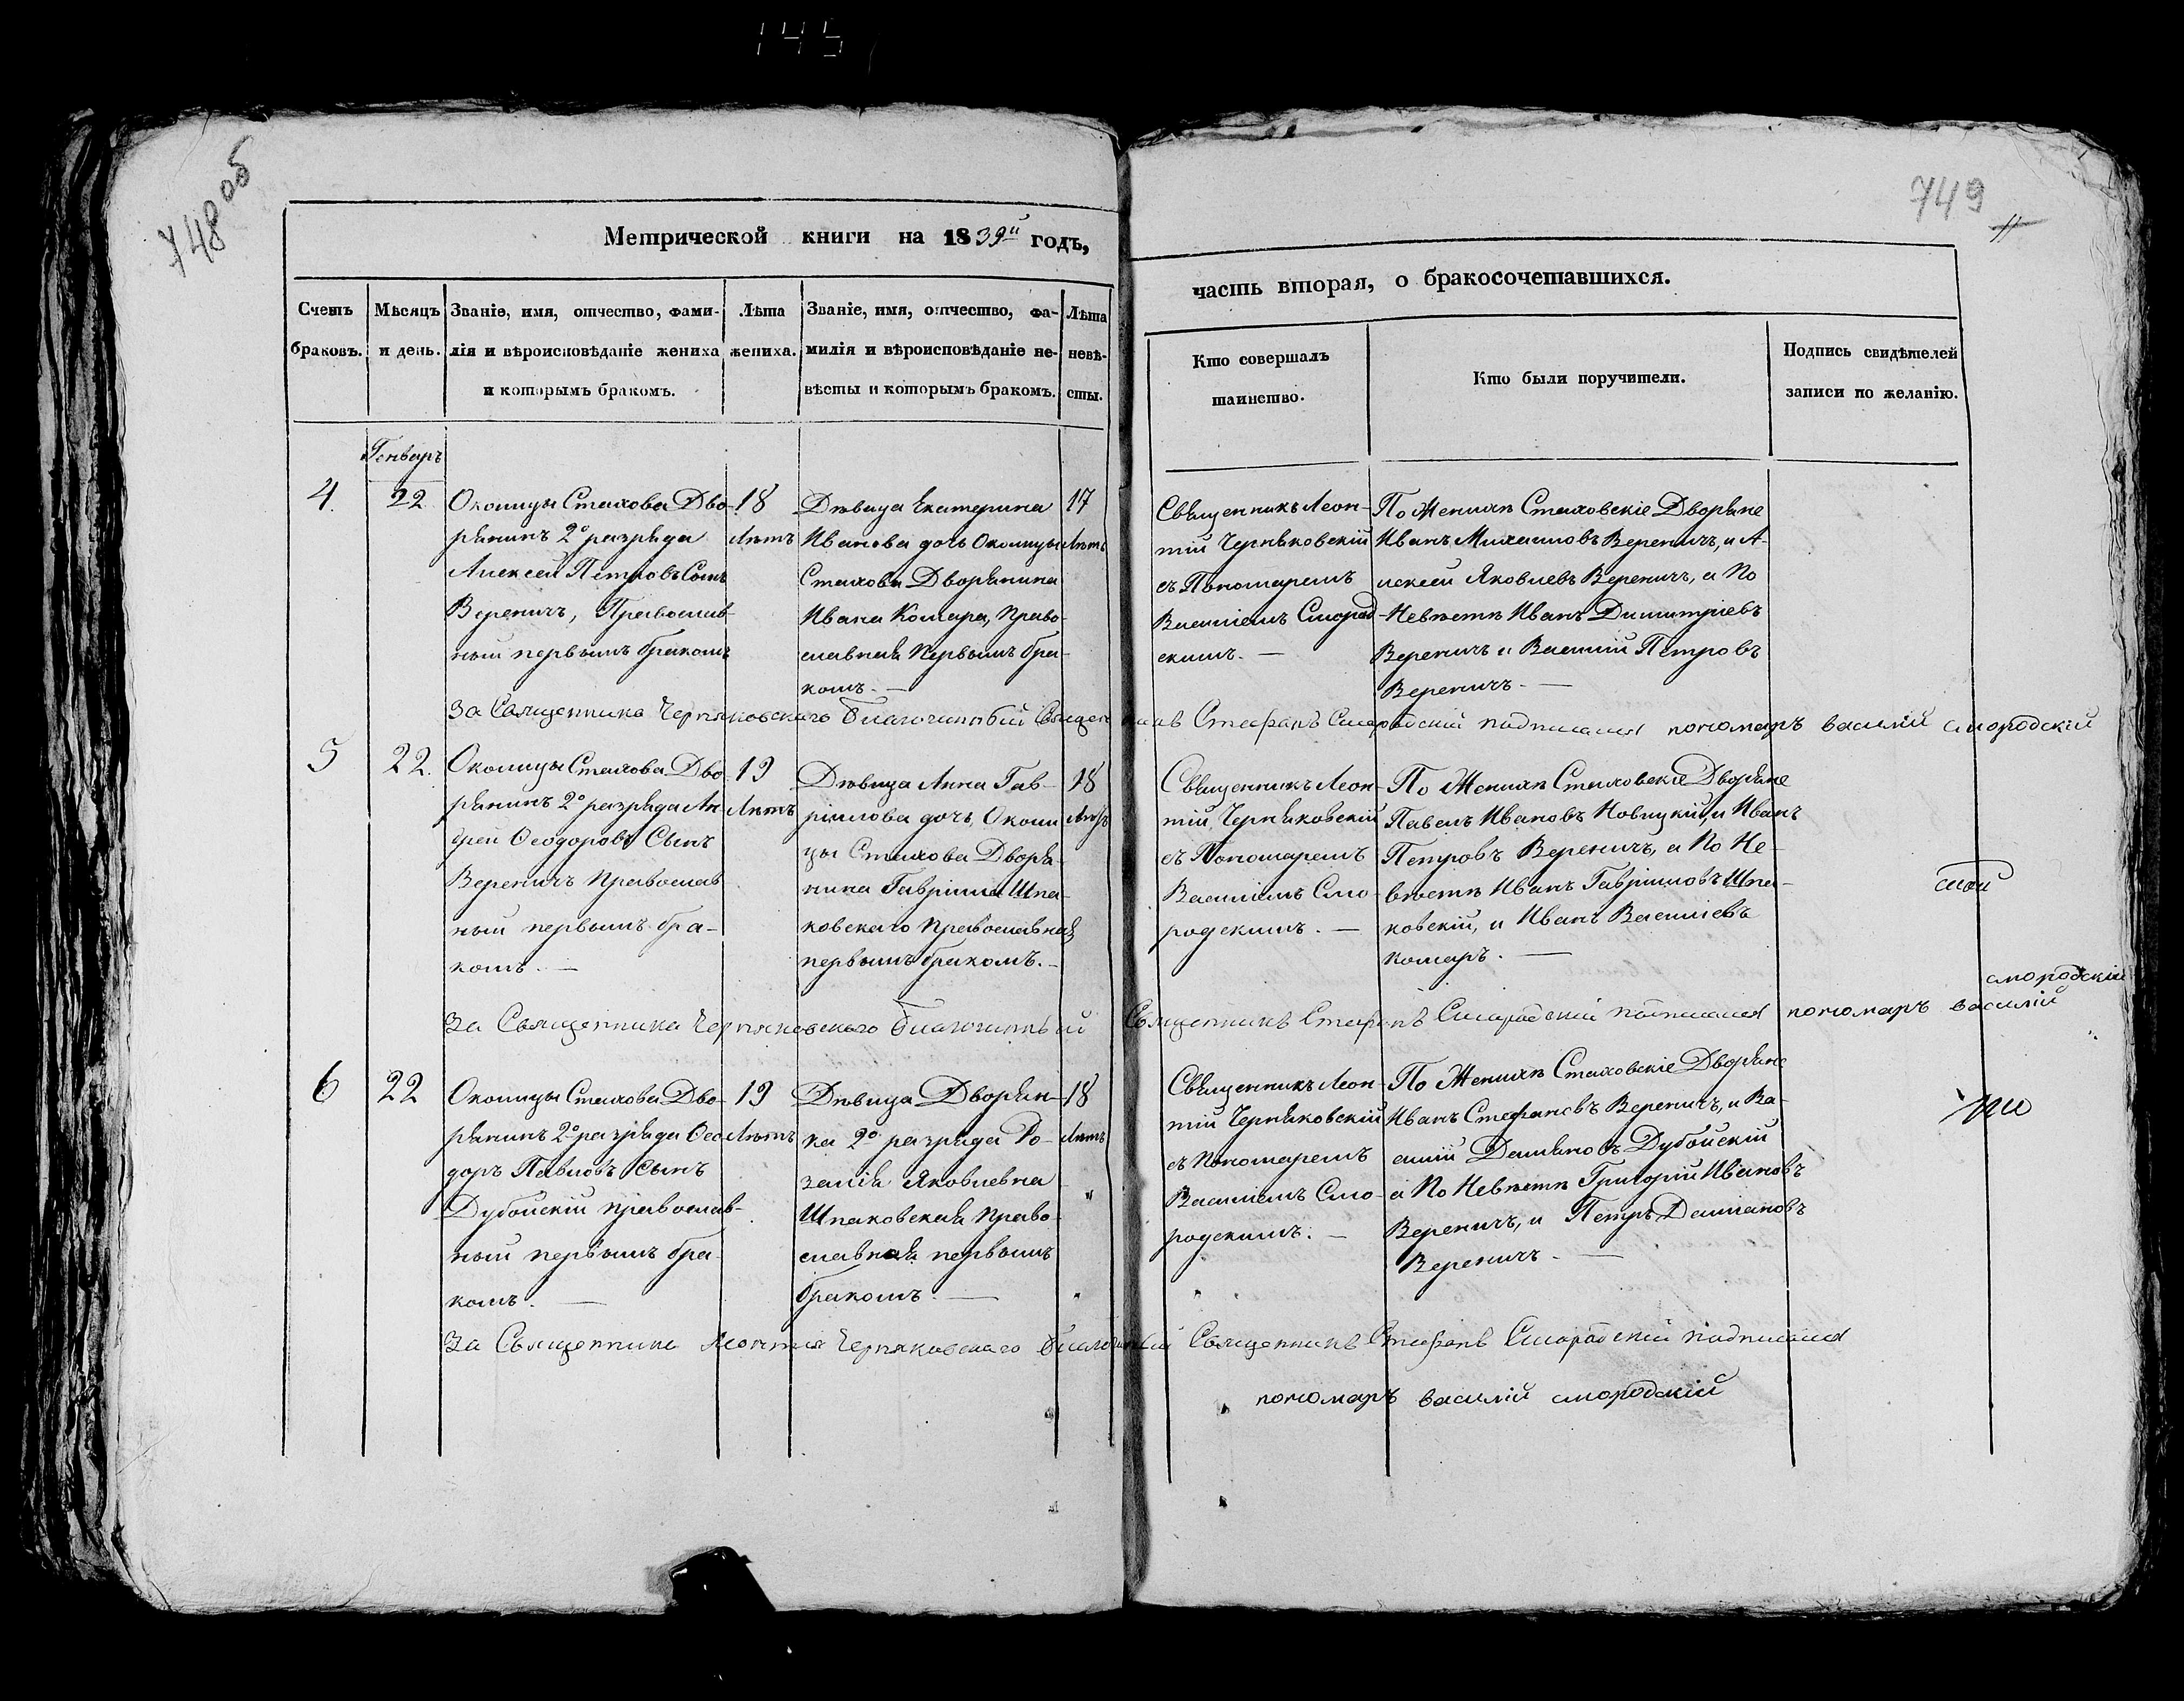 145
748 об
749
Метрической книги на 1839й годъ,
часть вторая, о бракосочетавшихся.
Счетъ
браковъ.
Мѣсяцъ
и день.
Званіе, имя, отчество, фами-
лія и вѣроисповѣданіе жениха
и которымъ бракомъ.
Лѣта
жениха.
Званіе, имя, отчество, фа-
милія и вѣроисповѣданіе не-
вѣсты и которымъ бракомъ.
Лѣта
невѣ-
сты.
Кто совершалъ
таинство.
Кто были поручители.
Подпись свидѣтелей
записи по желанію.
Генваръ
4.
22
Околицы Стахова Дво-
рянинъ 2º разряда
Алексей Петровъ Сынъ
Вереничъ, Православ-
ный первымъ бракомъ
18
Лѣтъ
Дѣвица Екатерина
Иванова дочь Околицы
Стахова Дворянина
Ивана Комара, Право-
славная Первымъ бра-
комъ. —
17
Лѣтъ
Священникъ Леон-
тій Черняковскій
съ Пономаремъ
Василіемъ Смород-
скимъ. —
По Женихѣ Стаховскіе Дворяне
Иванъ Михаиловъ Вереничъ, и А-
лексей Яковлевъ Вереничъ, а По
Невѣстѣ Иванъ Димитріевъ
Вереничъ и Василій Петровъ
Вереничъ. —
За Священника Черняковскаго Благочинный Священникъ Стефанъ Смородскій подписался пономаръ василій смородскій
5
22.
Околицы Стахова Дво-
рянинъ 2º разряда Ан-
дрей Ѳеодоровъ Сынъ
Вереничъ Православ
ный первымъ бра-
комъ. —
19
Лѣтъ
Дѣвица Анна Гав-
ріилова дочь, Околи
цы Стахова Дворя-
нина Гавріила Шпа-
ковскаго Православная
первымъ бракомъ. —
18
Лѣтъ
Священникъ Леон-
тій Черняковскій
съ Пономаремъ
Василіемъ Смо-
родскимъ. —
По Женихѣ Стаховскіе Дворяне
Павелъ Ивановъ Новицкій, и Иванъ
Петровъ Вереничъ, а По Не-
вѣстѣ Иванъ Гавріиловъ Шпа-
ковскій, и Иванъ Василіевъ
Комаръ. —
смородскій
За Священника Черняковскаго Благочинный Священникъ Стефанъ Смородскій подписался пономаръ василій
6
22
Околицы Стахова Дво-
рянинъ 2º разряда Ѳео
доръ Павловъ Сынъ
Дубойскій православ-
ный первымъ бра-
комъ. —
19
Лѣтъ
Дѣвица Дворян-
ка 2º разряда Ро-
залія Яковлевна
Шпаковская Право-
славная первымъ
бракомъ. —
18
Лѣтъ
Священникъ Леон-
тій Черняковскій
съ Пономаремъ
Василіемъ Смо-
родскимъ. —
По Женихѣ Стаховскіе Дворяне
Иванъ Стефановъ Вереничъ, и Ва-
силій Демяновъ Дубойскій
а По Невѣстѣ Григорій Ивановъ
Вереничъ, и Петръ Даміановъ
Вереничъ. —
За Священника Леонтія Черняковскаго Благочинный Священникъ Стефанъ Смородскій подписался
пономаръ василій смородскій